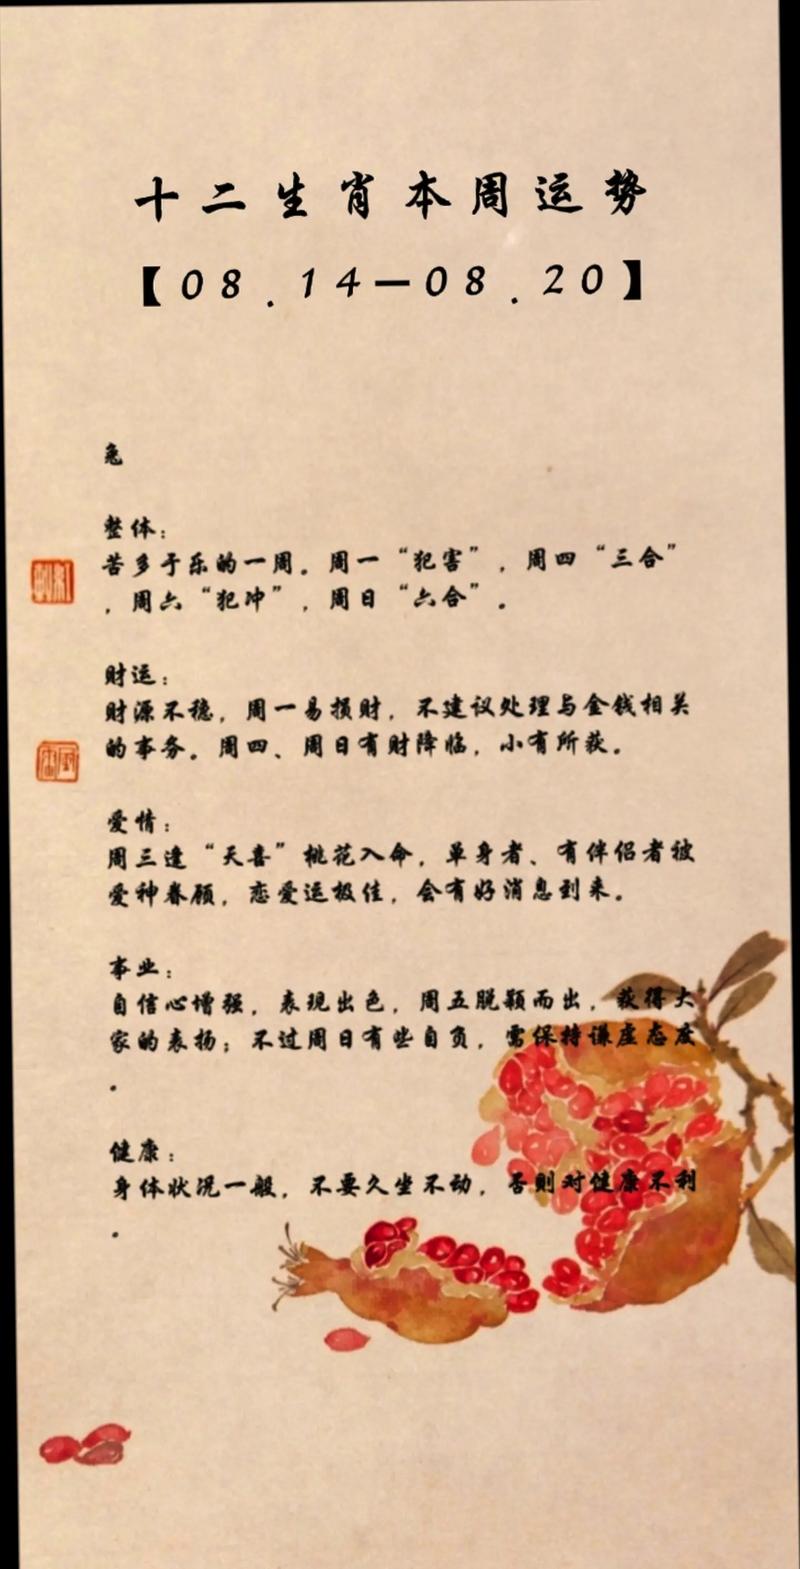 十二生肖本周运势
【08.14—08.20】
兔
整体：
苦多于乐的一周。周一“犯害”，周四“三合”
，周六“犯冲”，周日“六合”。
财运：
财源不稳，周一易损财，不建议处理与金钱相关
的事务。周四、周日有财降临，小有所获。
爱情：
周三逢“天喜”桃花入命，单身者、有伴侣者被
爱神眷顾，恋爱运极佳，会有好消息到来。
事业：
自信心增强，表现出色，周五脱颖而出，获得大
家的表扬；不过周日有些自负，需保持谦虚态度
。
健康：
身体状况一般，不要久坐不动，否则对健康不利
。